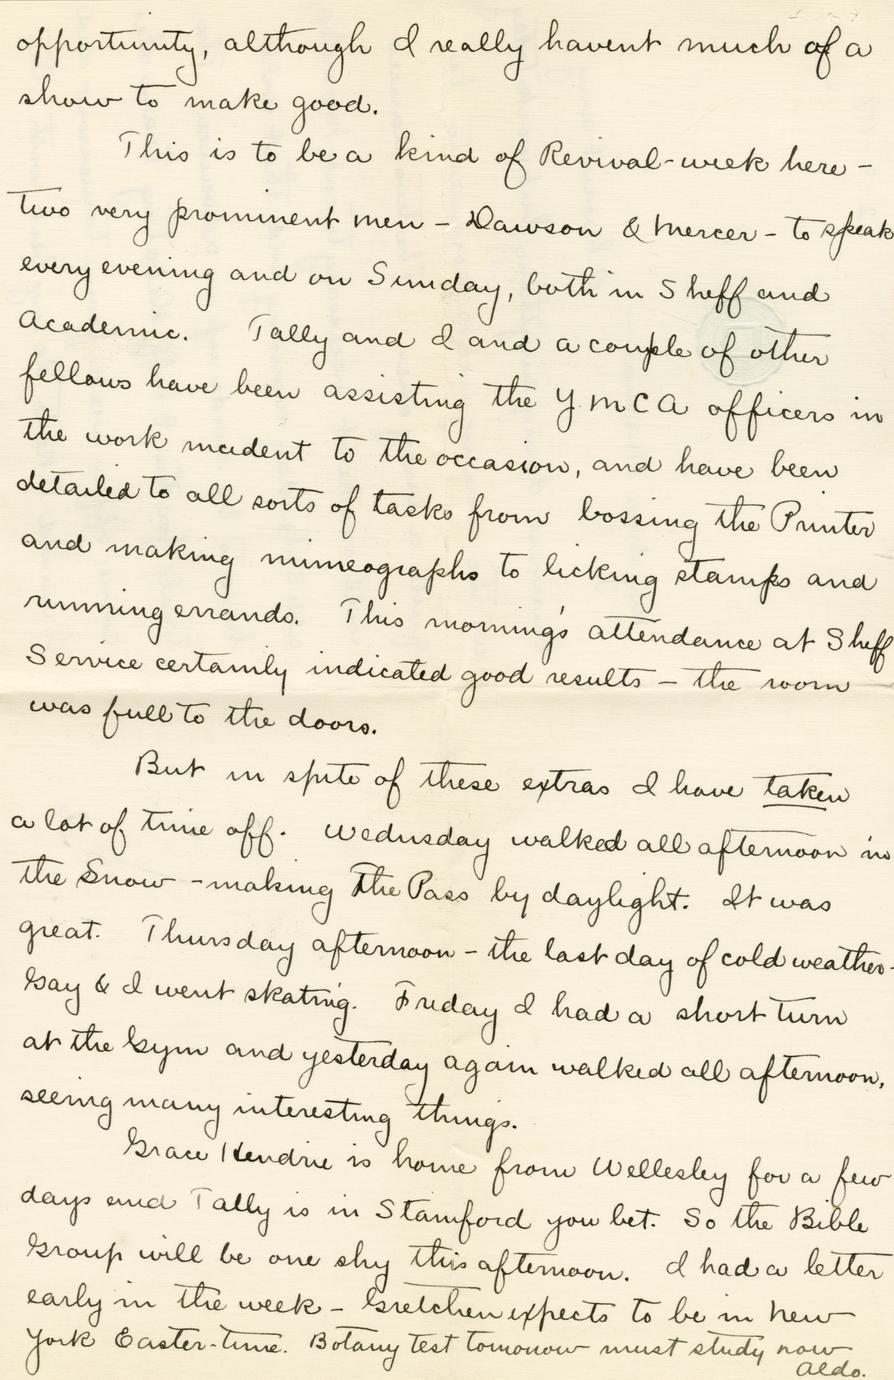 opportunity, although I really havent much of a
show to make good.
This is to be a kind of Revival-week here -
two very prominent men - Dawson & Mercer - to speak
every evening and on Sunday, both in Sheff and
Academic. Tally and I and a couple of other
fellows have been assisting the Y.M.C.A officers in
the work incident to the occasion, and have been
detailed to all sorts of tasks from bossing the Printer
and making mimeographs to licking stamps and
running errands. This morning's attendance at Sheff
Service certainly indicated good results - the room
was full to the doors.
But in spite of these extras I have taken
a lot of time off. Wednesday walked all afternoon in
the Snow - making The Pass by daylight. It was
great. Thursday afternoon - the last day of cold weather -
Gay & I went skating. Friday I had a short turn
at the Gym and yesterday again walked all afternoon,
seeing many interesting things.
Grace Hendrie is home from Wellesley for a few
days and Tally is in Stamford you bet. So the Bible
Group will be one shy this afternoon. I had a letter
early in the week - Gretchen expects to be in New
York Easter-time. Botany test tomorrow must study now
Aldo.